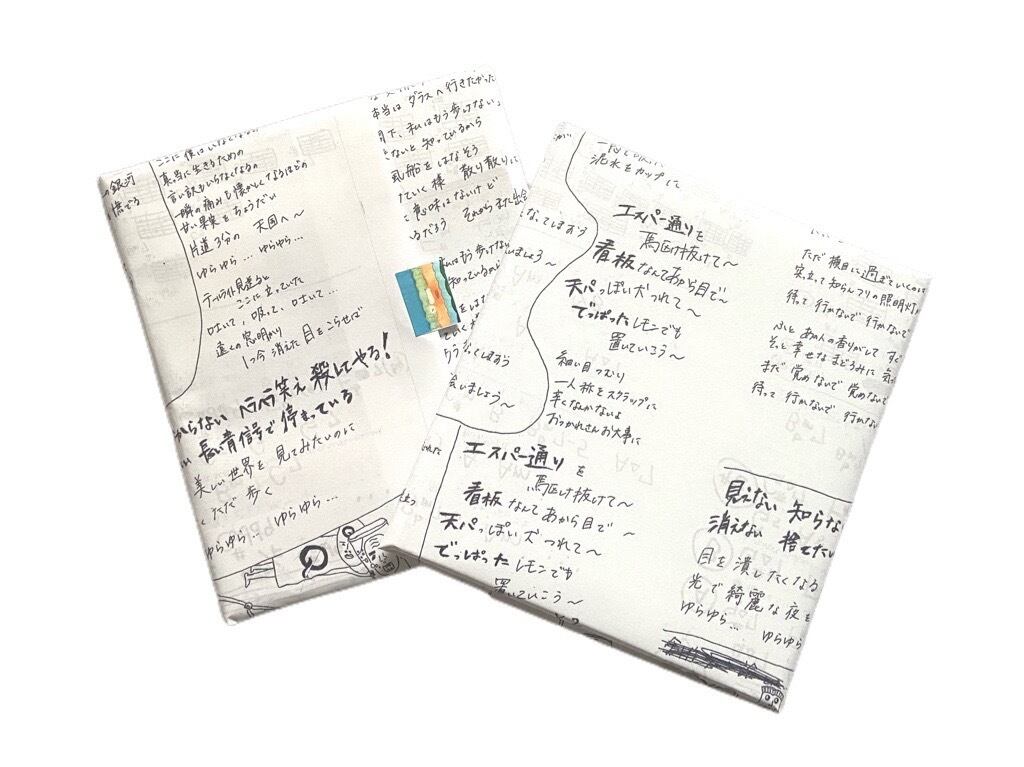 銀河
ここに僕はいなくなるの
真当に生きるための
言い訳もいらなくなるの
一瞬の痛みも懐かしくなるほどの
甘い果実をちょうだい
片道3分の 天国へ〜
ゆらゆら… ゆらゆら…
テールライト見送ると
ここに立っていた
吐いて、吸って、吐いて…
遠くの窓明かり
1つ今消えた 目をこらせば
からない ヘラヘラ笑え 殺してやる!
長い青信号で 停まっている
美しい世界を 見てみたいのに
ただ 歩く
ゆらゆら… ゆらゆら…
本当は ダラスへ行きたかった
月下、私はもう歩けない」
きないと 知っているから
風船を はなそう
ていく様 散り散りに
意味はないけど
るだろう それからまた出会
なくしてしまおう
ましょう〜
はもう歩けない
知っているから
なくしまおう
会いましょう〜
泥水をカップに
エスパー通りを
駆け抜けて〜
看板なんてあから目で〜
天パっぽい犬 つれて〜
でっぱったレモンでも
置いていこう〜
細い目つむり
一人称をスクラップに
辛くなかないよ
おつかれさんお大事に
エスパー通りを
駆け抜けて〜
看板なんて あから目で〜
天パっぽい犬 つれて〜
でっぱったレモンでも
置いていこう〜
ただ 横目に過ぎていくのに
突立って知らんフリの照明灯
待って 行かないで 行かないで
ふと あの人の香りがして すぐ
そっと 幸せなまどろみに 気
まだ 覚めないで 覚めないで
待って 行かないで 行かない
見えない 知らな
消えない 捨てたい
目を潰したくなる
光で綺麗な夜を
ゆらゆら… ゆらゆら